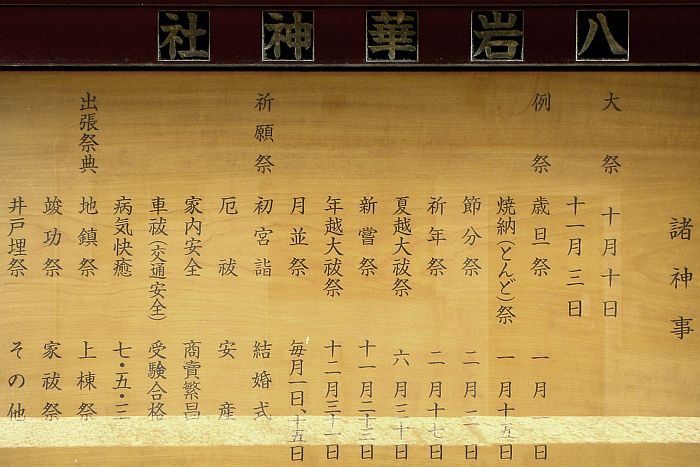 八岩華神社
諸神事
大祭 十月十日
十一月三日
例祭 歳旦祭 一月一日
焼納(とんど)祭 一月十五日
節分祭 二月二日
祈年祭 二月十七日
夏越大祓祭 六月三十日
新嘗祭 十一月二十三日
年越大祓祭 十二月三十一日
月並祭 毎月一日、十五日
祈願祭 初宮詣 結婚式
厄祓 安産
家内安全 商賣繁昌
車祓(交通安全) 受験合格
病気快癒 七・五・三
出張祭典 地鎮祭 上棟祭
竣功祭 家祓祭
井戸埋祭 その他